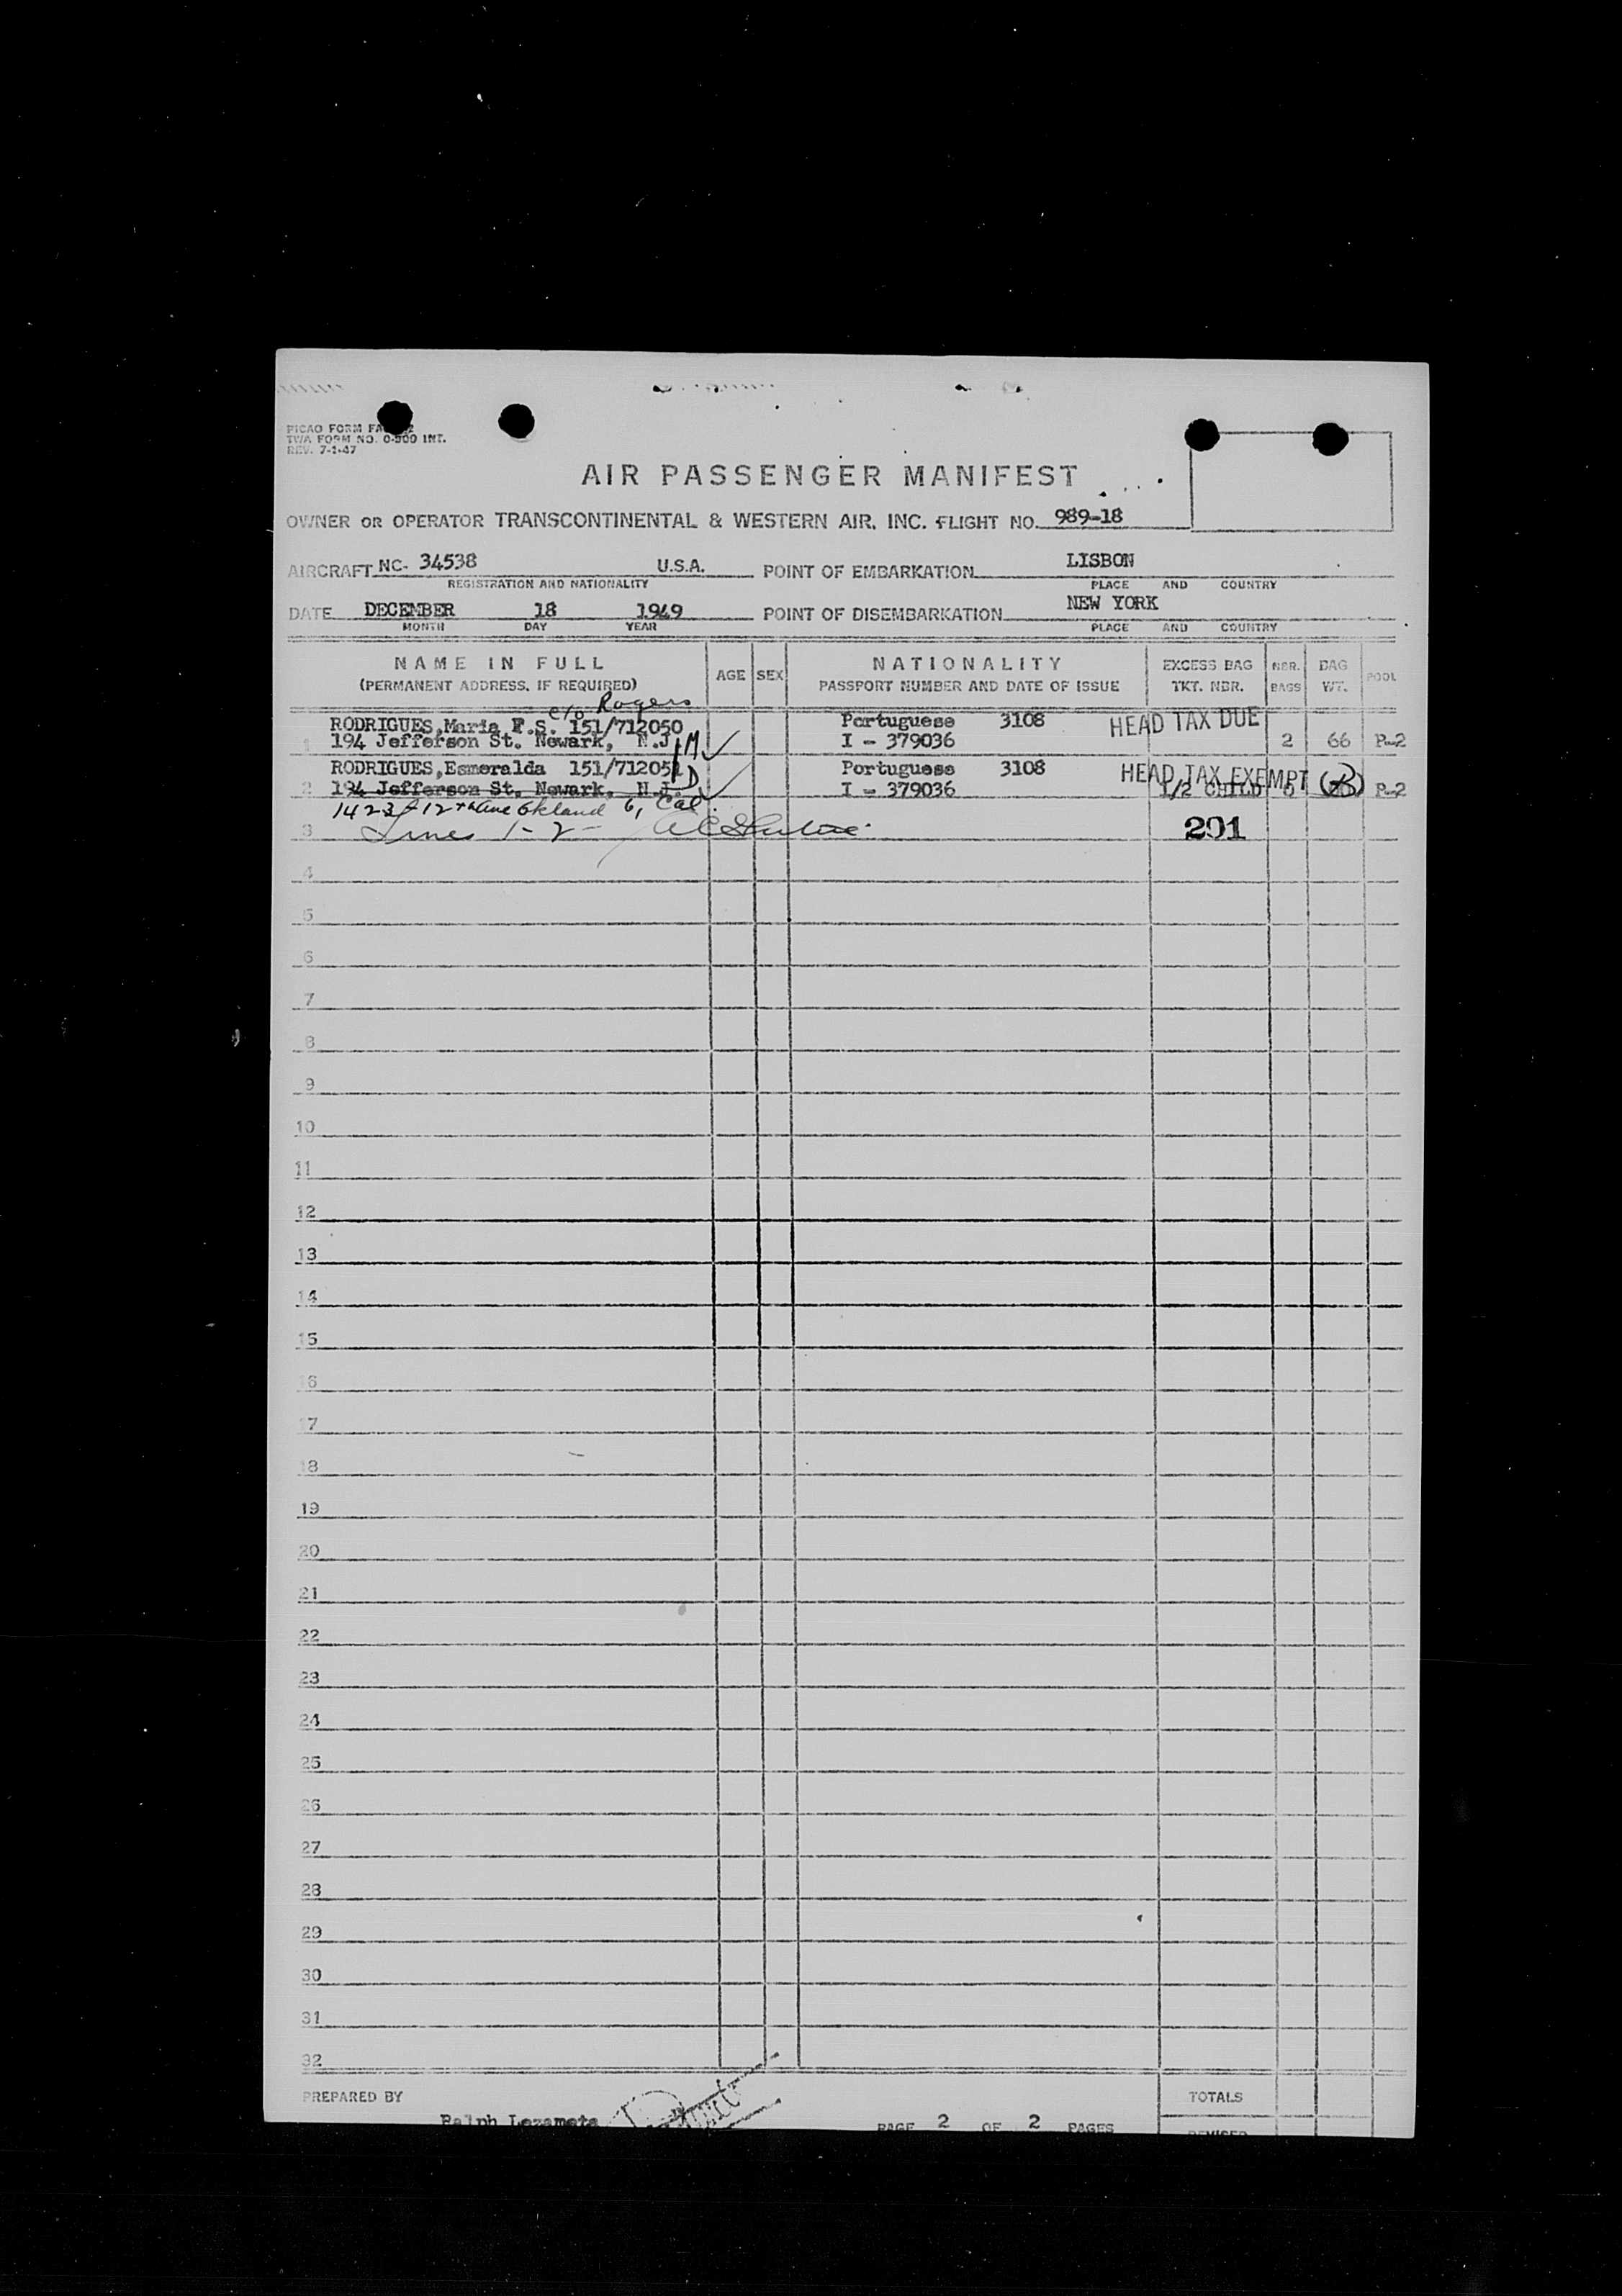 PICAO FORM FA
TWA FORM NO. 0-900 INT.
REV. 7-1-47
AIR PASSENGER MANIFEST
OWNER OR OPERATOR TRANSCONTINENTAL & WESTERN AIR, INC. FLIGHT NO. 989-18
AIRCRAFT NC- 34538 U.S.A. POINT OF EMBARKATION LISBON
REGISTRATION AND NATIONALITY PLACE AND COUNTRY
DATE DECEMBER 18 1949 POINT OF DISEMBARKATION NEW YORK
MONTH DAY YEAR PLACE AND COUNTRY
NAME IN FULL AGE SEX NATIONALITY EXCESS BAG NBR. BAG POOL
(PERMANENT ADDRESS, IF REQUIRED) PASSPORT NUMBER AND DATE OF ISSUE TKT. NBR. BAGS WT.
c/o Rogers
RODRIGUES,Maria F.S. 151/712050 Portuguese 3108 HEAD TAX DUE
1 194 Jefferson St. Newark, N.J. M I - 379036 2 66 P-2
RODRIGUES,Esmeralda 151/712051 Portuguese 3108 HEAD TAX EXEMPT
2 194 Jefferson St. Newark, N.J. D I - 379036 1/2 CHILD P-2
1423 12th Ave Okland 6, Cal.
3 Lines 1-2- 291
4
5
6
7
8
9
10
11
12
13
14
15
16
17
18
19
20
21
22
23
24
25
26
27
28
29
30
31
32
PREPARED BY TOTALS
Ralph Lozameta PAGE 2 OF 2 PAGES